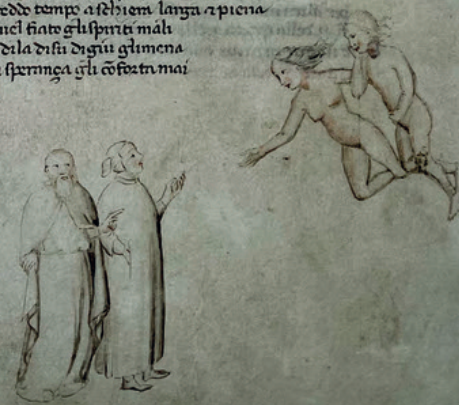 eddo tempo aschiera larga ꝛ piena
uel fiato gli spiriti mali
dila disu digiu glimena
sperança gli cōforta mai